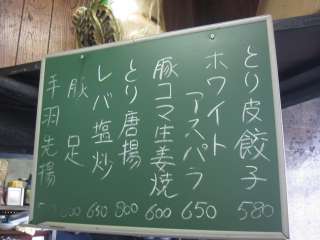 とり皮餃子 580
ホワイト
アスパラ 650
豚コマ生姜焼 600
とり唐揚 800
レバ塩炒 650
豚足
手羽先揚